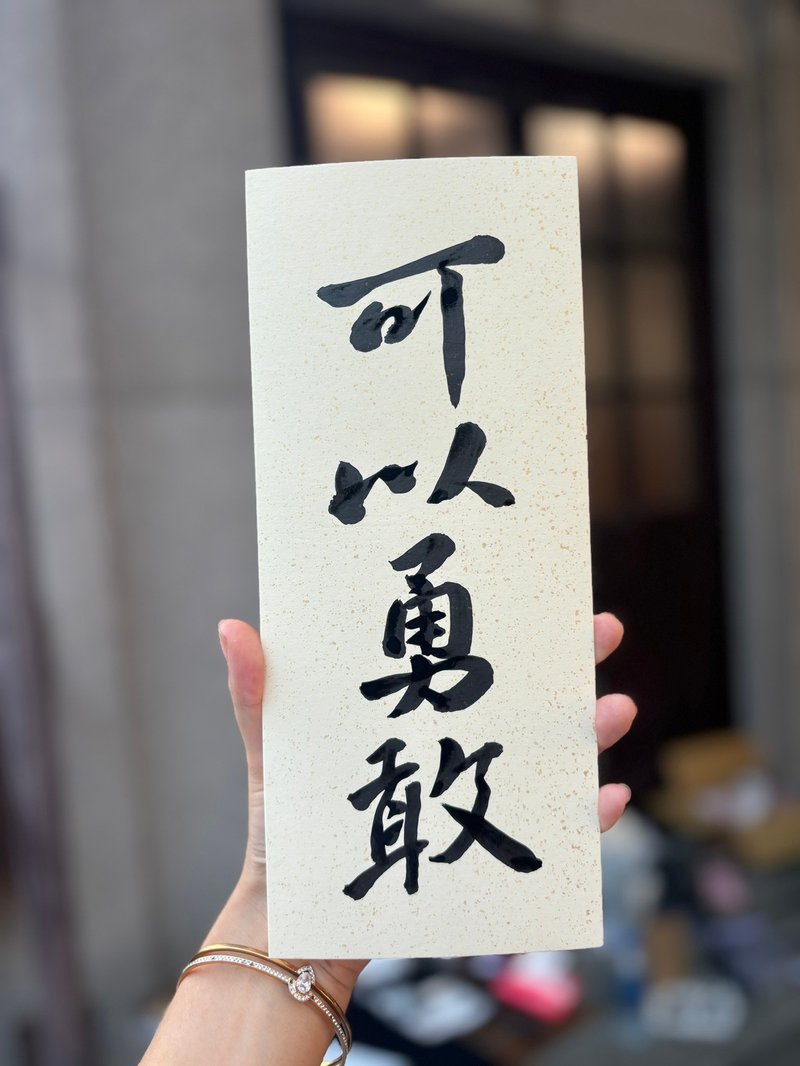 可以勇敢